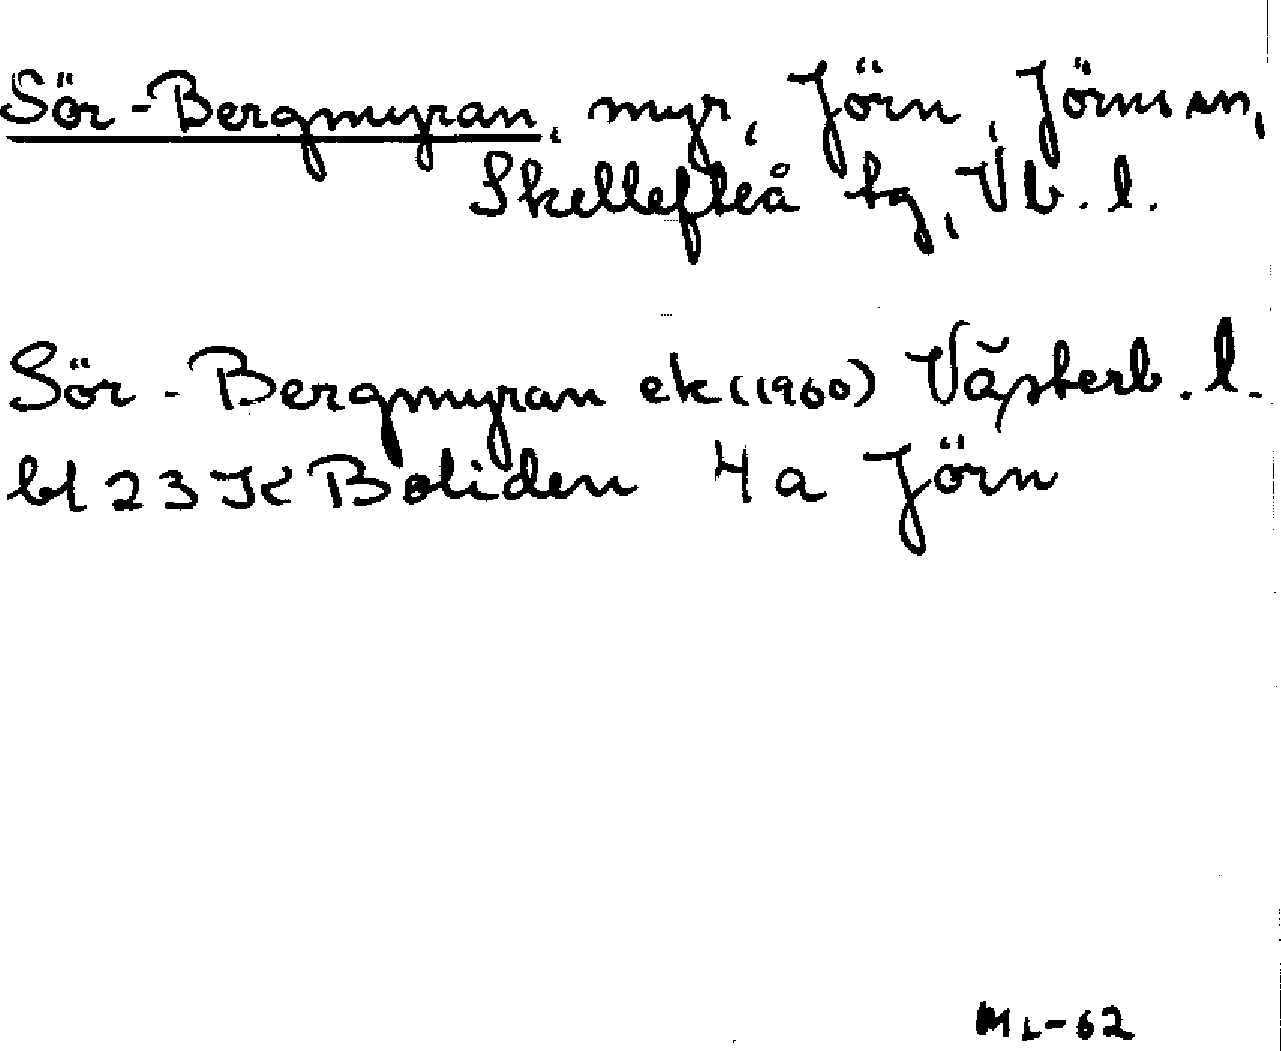 Sör-Bergmyran, myr, Jörn, Jörns sn,
Skellefteå tg, Vb. l.
Sör-Bergmyran ek (1960) Västerb. l.
bl 23 K Boliden 4a Jörn
ML-62